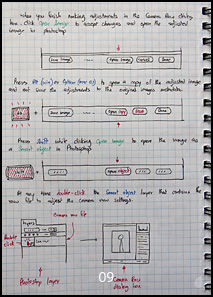 when you finish making adjustments in the Camera Raw dialog
box, click Open Image to accept changes and open the adjusted
image in photoshop
Save Image
Open Image
Cancel
Done
Press Alt (win) or Option (mac os) to open a copy of the adjusted image
and not save the adjustments to the original images metadata
Alt
+
Save Image
Open Copy
Reset
Done
Press Shift while clicking Open Image to open the image as
a Smart object in Photoshop
Open Object
Done
At any time double-click the Smart object layer that contains the
raw file to adjust the camera raw settings.
Camera raw file
Layers
double
click
09
Photoshop layer
Camera Raw
dialog box